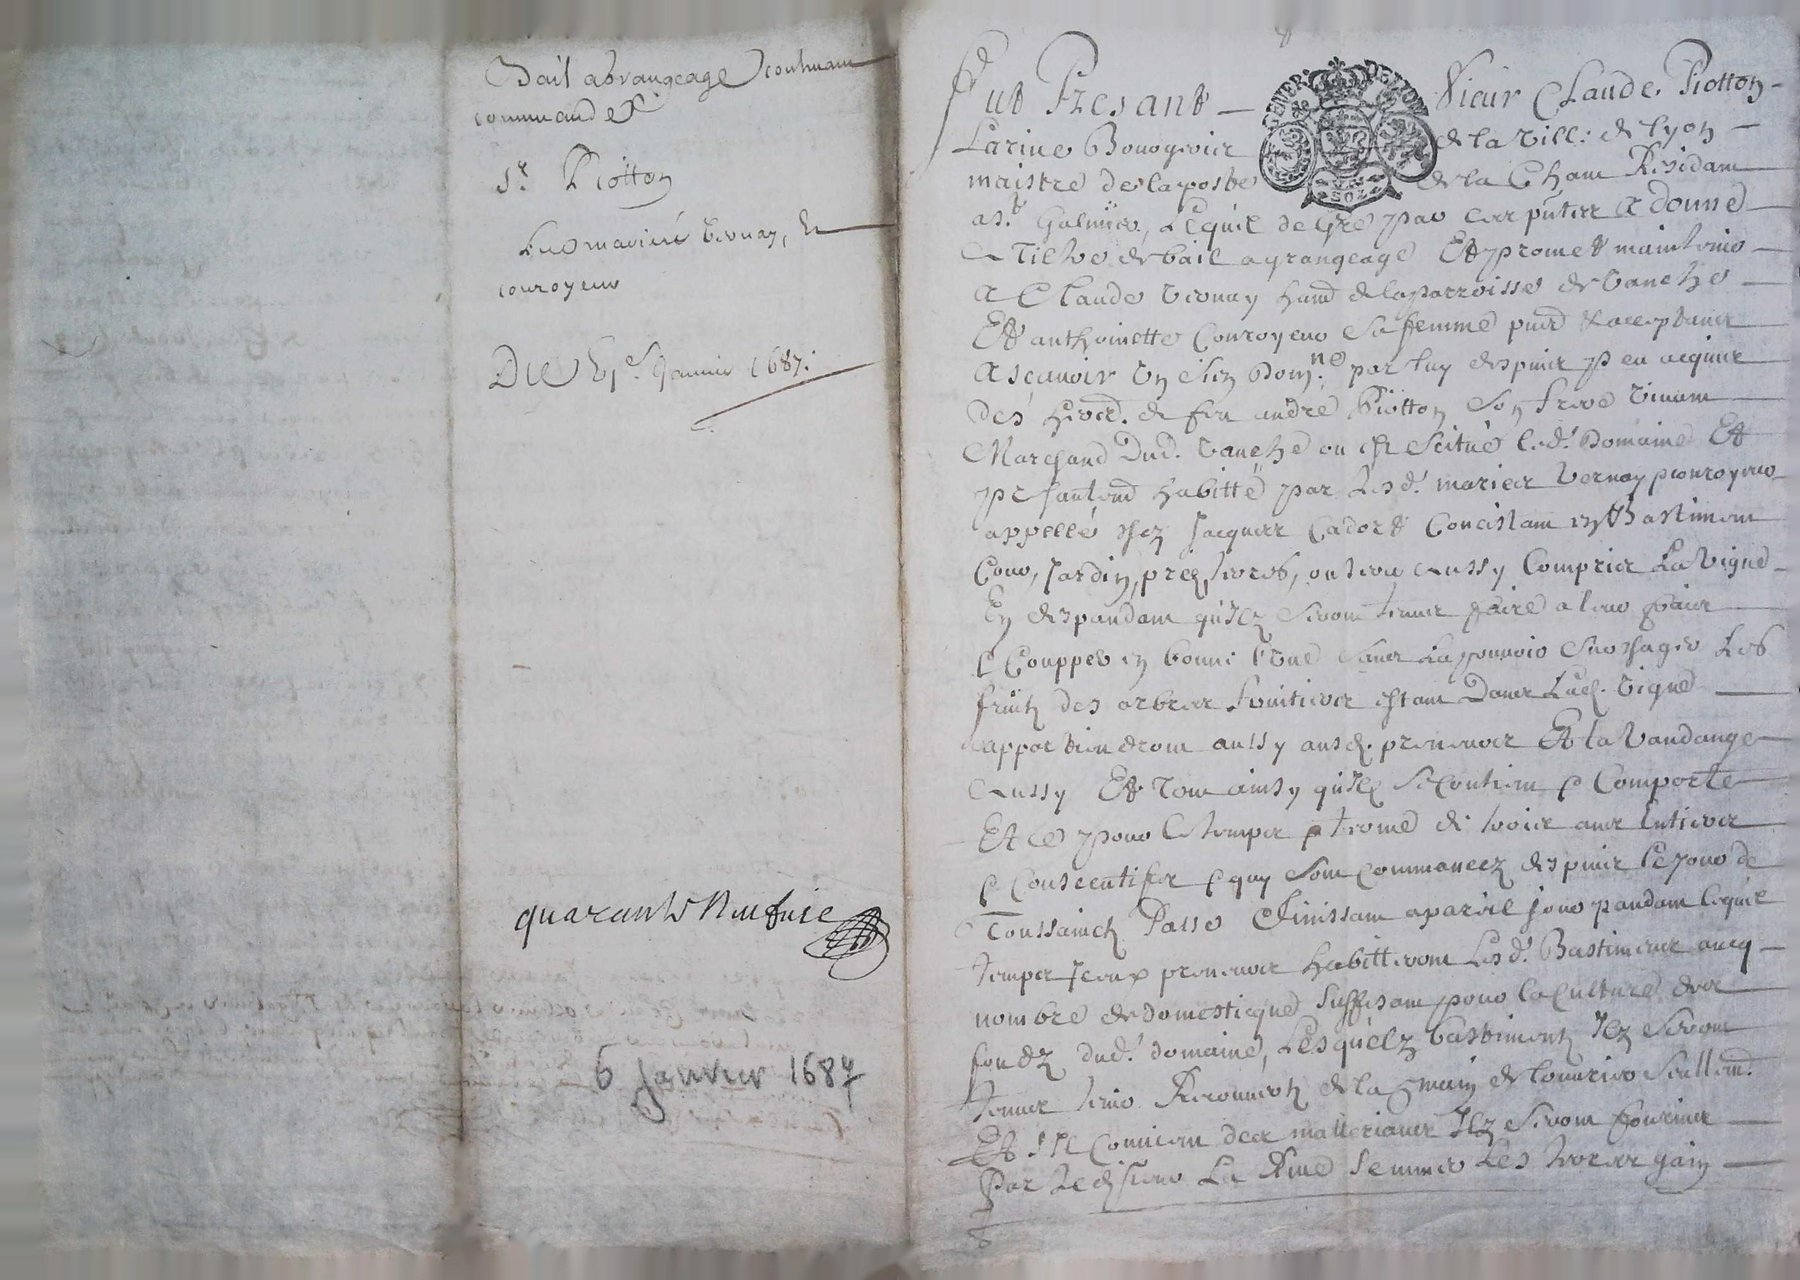 Bail abrangeage contenant
commande
Sr. Piotton
Les mariés Vernay, Et
couroyeur
Du 6e. Janvier 1687.
quarante Neufvie
6 Janvier 1687
Fut Presant Sieur Claude Piotton
Bourgeois de la Ville de Lyon
maistre de la poste de la Cham Residant
a St. Galmier, Lequel de Gré a donné
a Tiltre de bail a grangeage Et promet maintenir
A Claude Vernay de la parroisse de Vauche
Et anthoinette Couroyeur Sa femme
Ascavoir Un Sien Dom.ne par luy despuis peu acquis
des de feu andré Piotton Son frere vivant
Marchand Dud. Vauche ou est Scitué led. Domaine Et
habitté par lesd. mariés Vernay Couroyeur
appellé chez Jacques Cadort Concistant en Bastiment
Cour, Jardin, prez, terres, aussy Compris La Vigne
En despandant qu'Ilz Seront tenus faire a leur frais
Coupper en bonne Les
fruitz des arbres fruitiers estant Dans Lad. vigne
appartiendront aussy ausd. preneurs Et la Vandange
aussy Et Tout ainsy qu'Il Se Contient Comporte
Et ce pour le temps et terme de trois ans Entiers
Consecutifs quy Sont Commancez despuis le Jour de
Toussainctz Passé finissant a pareil Jour pandant lequel
temps Iceux preneurs habitteront Lesd. Bastiments avecq
nombre de domesticque Suffisant pour la Culture des
fondz dud. domaine, Lesquelz bastimentz Ilz Seront
tenus tenir de la main de l'ouvrier Seullemt.
Et s'Il Convient des matteriaux Ilz Seront fournis
Par led. sieur La